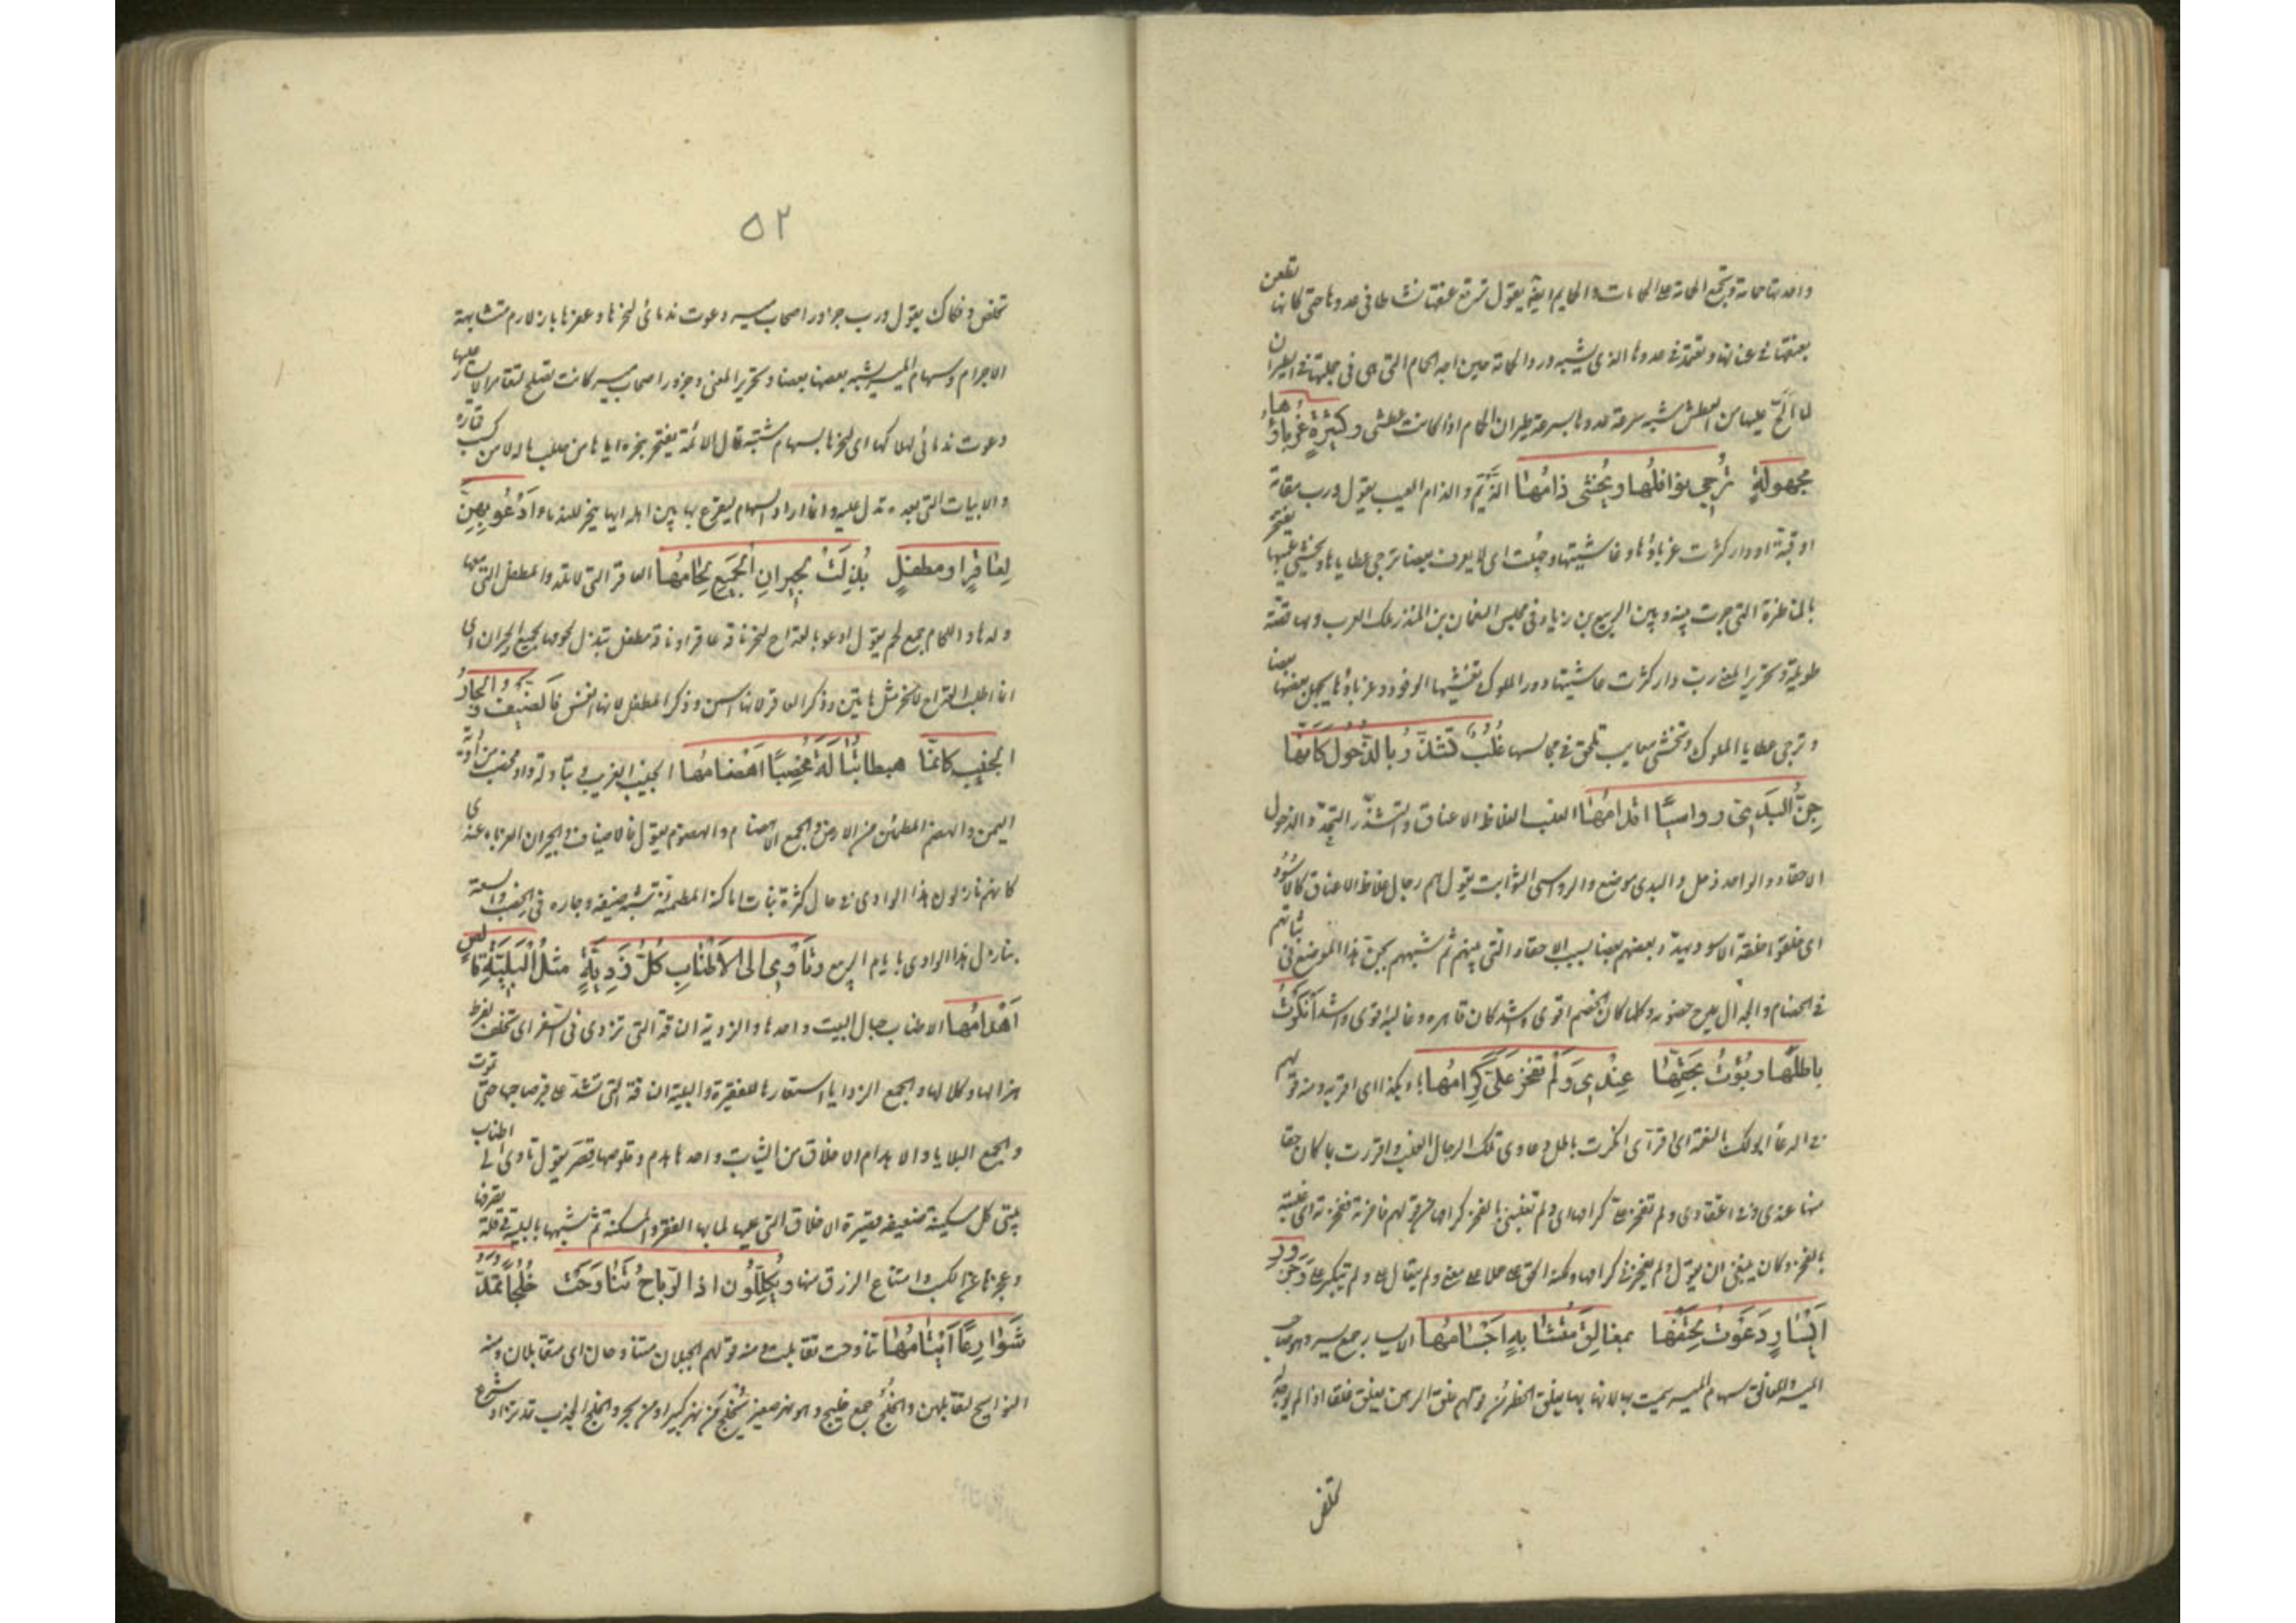 واحدتها حمامة وتجمع الحمامة على الحمامات والحمايم ايضا يقول ترفع عنقها نشاطا في عدوها حتى كانها تطعن
بعنقها في عنانها وتعتمد في عدوها الذي يشبه ورد الحمامة حين اجد الحمام التي هي في جملتها في الطيران
لما الح عليها من العطش شبه سرعة عدوها بسرعة طيران الحمام اذا كانت عطشى وكَثيرَةٍ غُرَباؤُها
مجهولةٍ تُرجى نوافلُها ويُخشى ذامُها الذَيم والذام العيب يقول ورب مقامة
او قبة او دار كثرت غرباؤها وغاشيتها وجهلت اى لا يعرف بعضا ترجى عطاياها ويخشى عيبها يفتخر
بالمناظرة التي جرت بينه وبين الربيع بن زياد في مجلس النعمان بن المنذر ملك العرب ولها قصة
طويلة وتحرير المعنى رب دار كثرت غاشيتها ودور الملوك تغشيها الوفود وغرباؤها يجهل بعضها بعضا
وترجى عطايا الملوك وتخشى معايب تلحق في مجالسها غُلْبٌ تَشَذَّرُ بالذُّحُول كَاَنَّها
جِنُّ البَدِىّ رواسيًا اقدامُها الغلب الغلاظ الاعناق والتشذر التهدد والذحول
الاحقاد والواحد ذحل والبدى موضع والرواسى الثوابت يقول هم رجال غلاظ الاعناق كالاسُود
اى خلقوا خلقة الاسود يهدد بعضهم بعضا بسبب الاحقاد التي بينهم ثم شبههم بجن هذا الموضع في ثباتهم
في الخصام والجدال يمدح خصومه وكلما كان الخصم اقوى واشد كان قاهره وغالبه اقوى واشد اَنكَرْتُ
باطلَها وبُؤتُ بحَقِّها عندى وَلَم تفخر عَلَىَّ كِرامُها باء بكذا اى اقر به ومنه قولهم
في الدعا ابوء لك بالنعمة اى اقر اى انكرت باطل دعاوى تلك الرجال الغلب واقررت بما كان حقا
منها عندى وفي اعتقادى ولم تفخر على كرامها اى ولم تغلبنى بالفخر كرامها من قولهم فاخرته ففخرته اى غلبته
بالفخر وكان ينبغى ان يقول ولم تفخرنى كرامها ولكنه الحق على حملا على معنى ولم يتعال على ولم يتكبر على وَجَزُورِ
اَيْسَارٍ دَعَوتُ لِحَتْفِها بمغالقٍ مُتَشابهٍ اَجْسامُها الايسار جمع يسر وهو صاحب
الميسر والمغالق سهام الميسر سميت بها لانها بها يغلق الخطر من قولهم غلق الرهن يغلق غلقا اذا لم يوجد له
تخلص
٥٢
تخلص وفكاك يقول ورب جزور اصحاب ميسر دعوت ندمائى لنحرها وعقرها بازلام متشابهة
الاجرام وسهام الميسر يشبه بعضها بعضا وتحرير المعنى وجزور اصحاب ميسر كانت تصلح لتقامر الايسار عليها
دعوت ندمائى لهلاكها اى لنحرها بسهام متشبة قال الائمة يفتخر بنحره اياها من صلب ماله لا من كسب قماره
والابيات التي بعده تدل عليه وانما اراد السهام ليقرع بها بين ابله ايها ينحر للندماء اَدْعُو بهِنَّ
لِعَاقرٍ او مطفلٍ بُذِلَتْ لجيرانِ الجَميعِ لِحامُها العاقر التي لا تلد والمطفل التي معها
ولدها واللحام جمع لحم يقول ادعو بالقداح لنحر ناقة عاقر او ناقة مطفل تبذل لحومها لجميع الجيران اى
انما اطلب القداح لانحر مثل هاتين وذكر العاقر لانها اسمن وذكر المطفل لانها انفس فَالضَيْفُ والجارُ
الجَنِيبُ كانمّا هبطا تَبَالَةَ مُخصِبًا اَهْضامُها الجنيب الغريب وتبالة واد مخصب من اودية
اليمن والهضم المطمئن من الارض والجمع الاهضام والهضوم يقول فالاضياف والجيران الغرباء عندى
كانهم نازلون هذا الوادى في حال كثرة نبات اماكنه المطمئنة شبه ضيفه وجاره في الخصب والسعة
بنازل هذا الوادى ايام الربيع وتَأوِى الى الاَطْنابِ كُلُّ رَذِيّةٍ مثلُ البَلِيَّةِ قالصٍ
اَهْدامُها الاطناب حبال البيت واحدها والرذية الناقة التي ترذى في السفر اى تتخلف لفرط
هزالها وكلالها والجمع الرذايا استعارها للفقيرة والبلية الناقة التي تشد على قبر صاحبها حتى تموت
والجمع البلايا والاهدام الاخلاق من الثياب واحدها هدم وقلوصها قصر يقول تاوى الى اطناب
بيتى كل مسكينة ضعيفة قصيرة الاخلاق التي عليها لما بها الفقر والمسكنة ثم شبهها بالبلية في قلة تصرفها
وعجزها عن الكسب وامتناع الرزق منها ويُكلِّلُون اذا الرّياحُ تَناوَحَت خُلُجًا تُمَدُّ
شَوارِعًا اَيْتامُها تناوحت تقابلت منه قولهم الجبلان متناوحان اى متقابلان ومنه
النوايح لتقابلهن والخُلُج جمع خليج وهو نهر صغير يخلج من نهر كبير او من بحر والخلج الجذب تمد تزاد وشرع